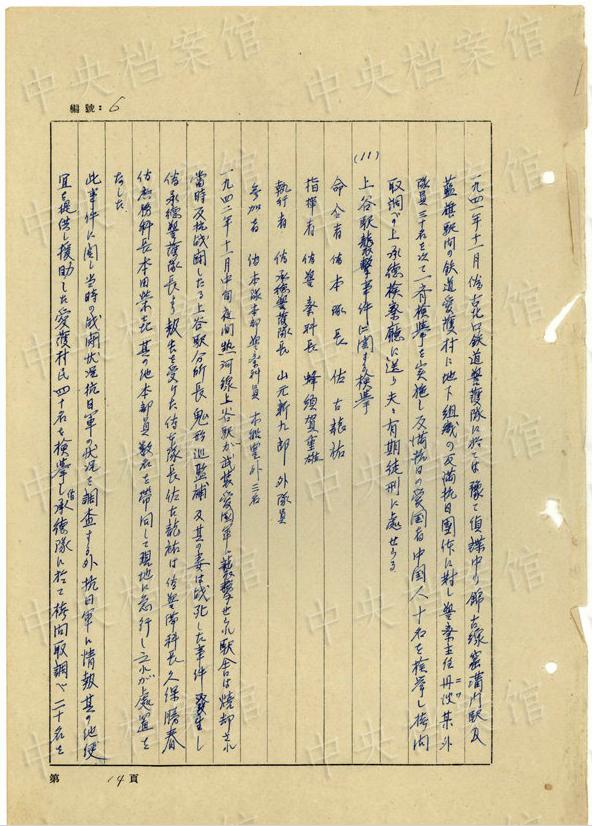 編號：6
一九四一年十一月偽古北口鉄道警護隊に於ては豫て偵諜中の錦古線 駅及
藍旗駅間の鉄道愛護村に地下組織の反満抗日團体に対し警察主任丹波某外
隊員三十名を以て一斉検挙を実施し反満抗日の愛国者中国人十名を検挙し拷問
取調べの上承徳検察廳に送り夫々有期徒刑に處せらる
(11) 上谷駅襲撃事件に関する検挙
命令者 偽本隊長 佐古龍祐
指揮者 偽警察科長 蜂須賀重雄
執行者 偽承徳警護隊長 山元新九郎 外隊員
参加者 偽本隊本部警察科員 外三名
一九四一年十一月中旬夜間熱河線上谷駅が武装愛国軍に襲撃せられ駅舎は焼却され
當時反抗戦闘したる上谷駅分所長 監補及其の妻は戦死した事件発生し
偽承徳警護隊長より報告を受けた偽本隊長佐古龍祐は偽警務科長久保勝春
偽 務科長本田 其の他本部員数名を帯同して現地に急行し之れが處置を
なした
此事件に関し当時の戦闘状況抗日軍の状況を調査する外抗日軍に情報其の他便
宜を提供し援助した愛護村民四十名を検挙し偽承徳隊に於て拷問取調べ二十名を
第 14 頁
中央档案馆